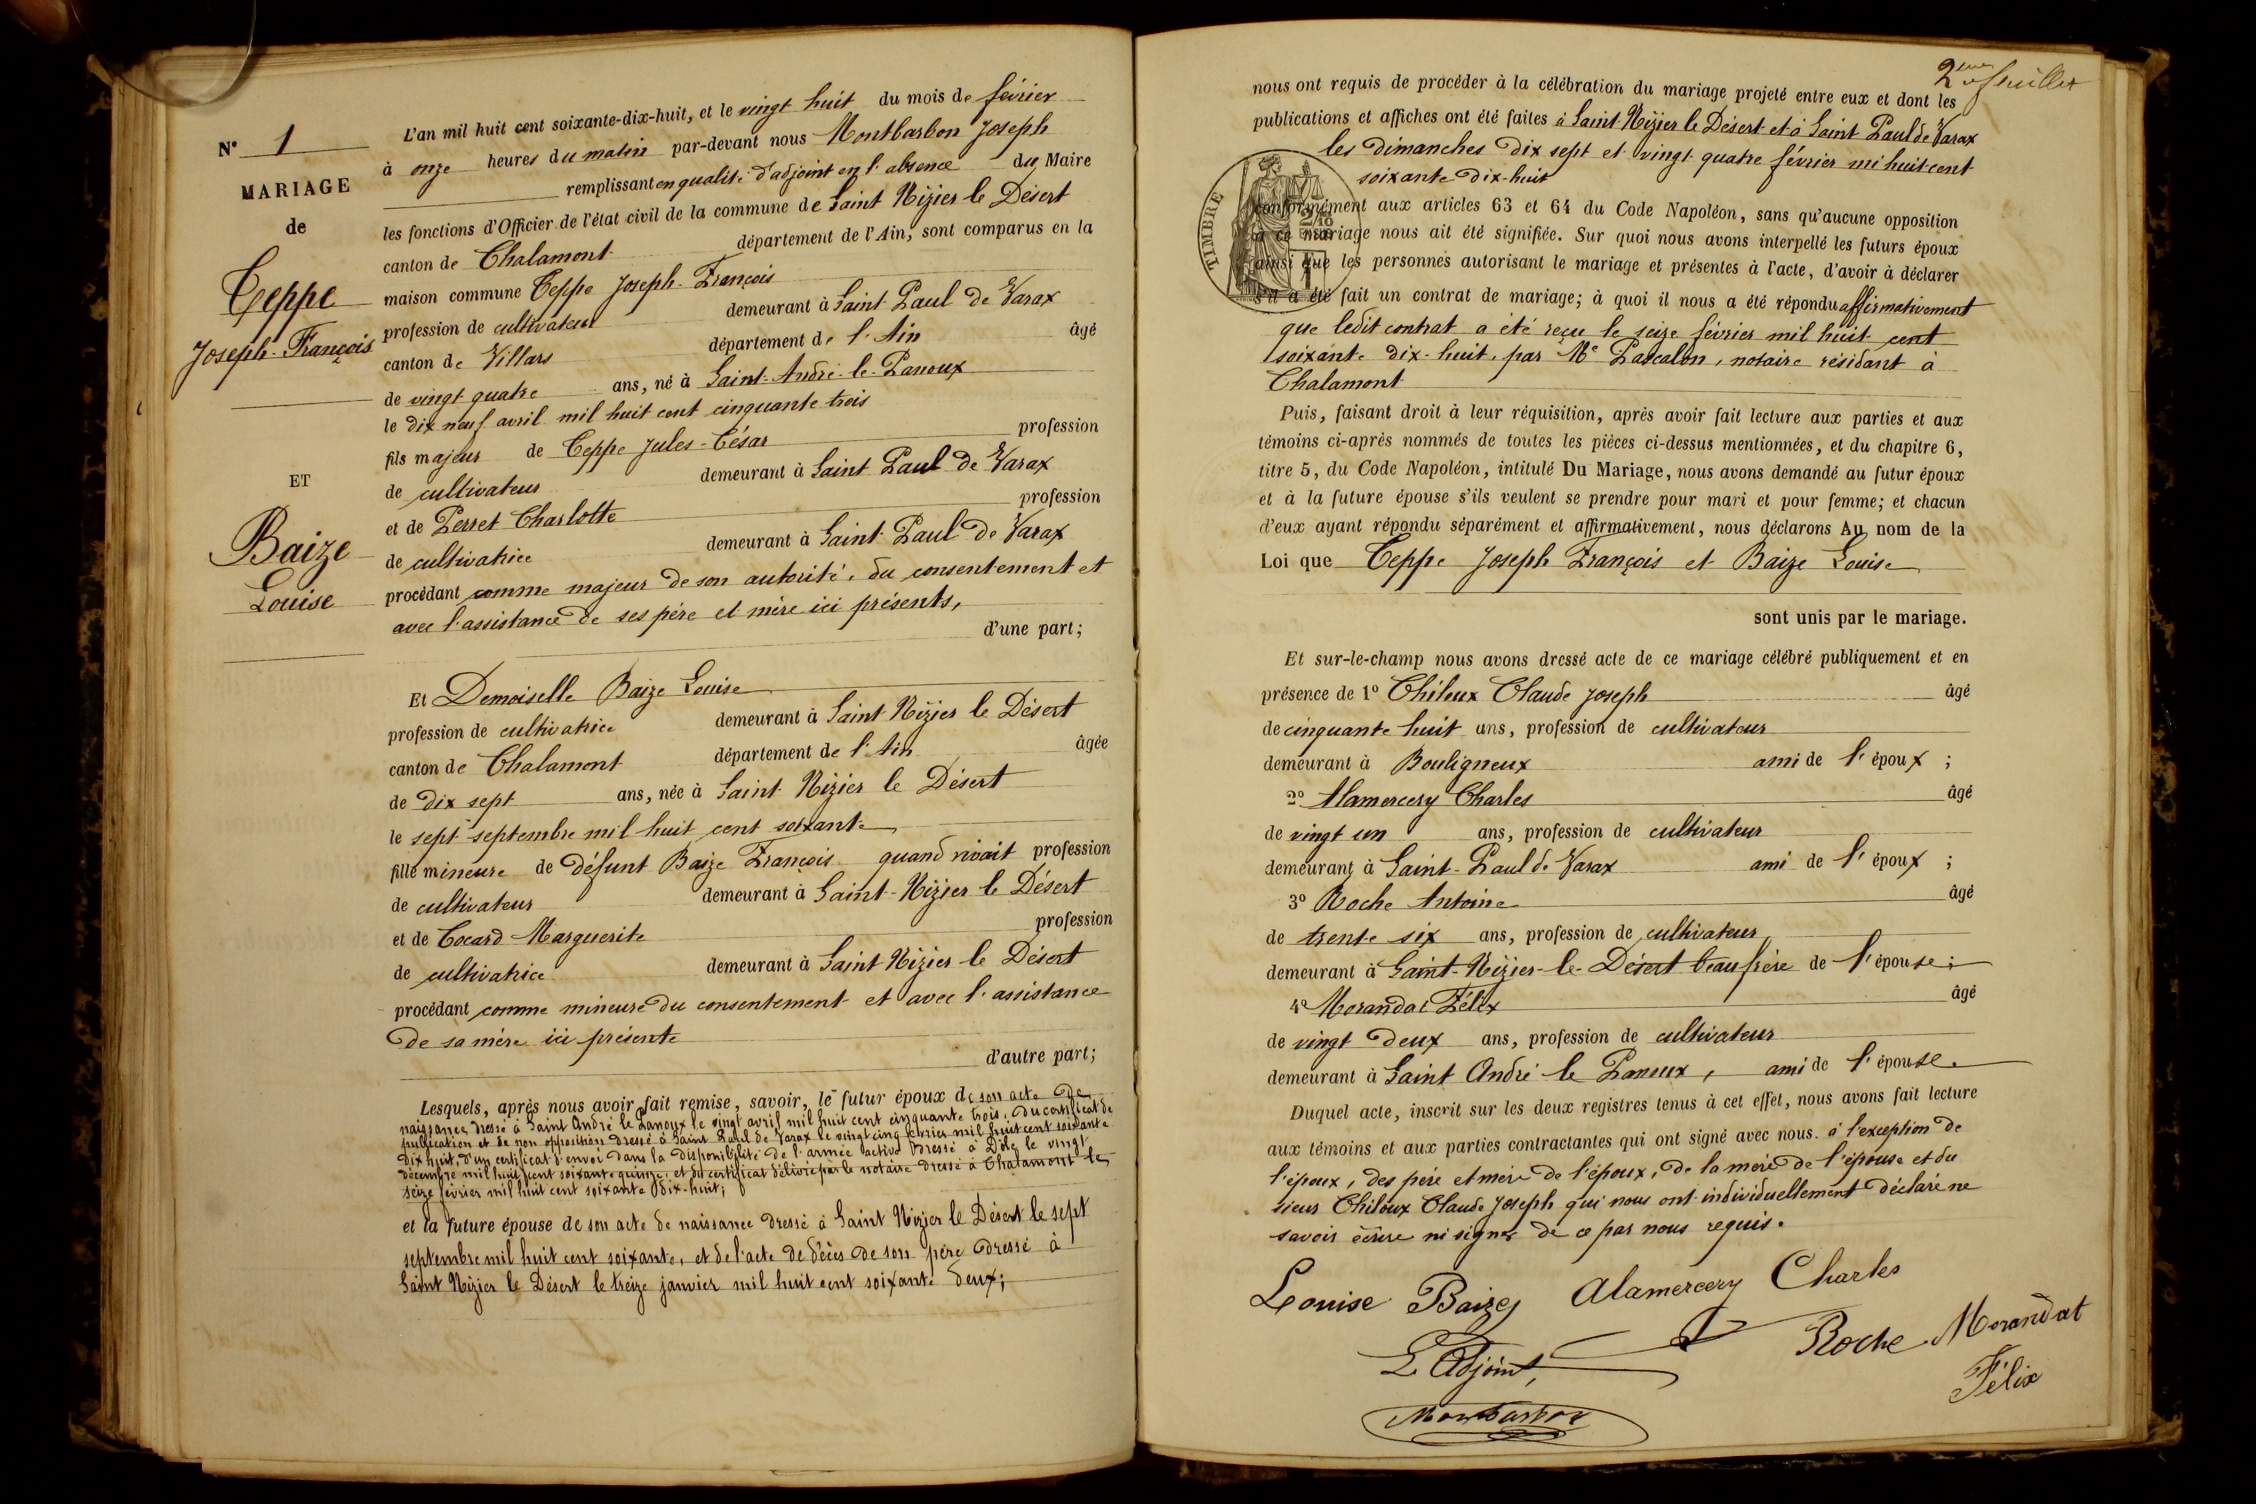 N° 1
MARIAGE
de
Teppe
Joseph-François
ET
Baize
Louise
L'an mil huit cent soixante-dix-huit, et le vingt huit du mois de février
à onze heures du matin par-devant nous Montbarbon Joseph
remplissant en qualité d'adjoint en l'absence du Maire
les fonctions d'Officier de l'état civil de la commune de Saint Nizier le Désert
canton de Chalamont département de l'Ain, sont comparus en la
maison commune Teppe Joseph-François
profession de cultivateur demeurant à Saint Paul de Varax
canton de Villars département de l'Ain âgé
de vingt quatre ans, né à Saint-André-le-Panoux
le dix neuf avril mil huit cent cinquante trois
fils majeur de Teppe Jules-César profession
de cultivateur demeurant à Saint Paul de Varax
et de Perret Charlotte profession
de cultivatrice demeurant à Saint Paul de Varax
procédant comme majeur de son autorité, du consentement et
avec l'assistance de ses père et mère ici présents,
d'une part;
Et Demoiselle Baize Louise
profession de cultivatrice demeurant à Saint Nizier le Désert
canton de Chalamont département de l'Ain âgée
de dix sept ans, née à Saint Nizier le Désert
le sept septembre mil huit cent soixante
fille mineure de défunt Baize François quand vivait profession
de cultivateur demeurant à Saint-Nizier le Désert
et de Cocard Marguerite profession
de cultivatrice demeurant à Saint Nizier le Désert
procédant comme mineure du consentement et avec l'assistance
de sa mère ici présente
d'autre part;
Lesquels, après nous avoir fait remise, savoir, le futur époux de son acte de
naissance dressé à Saint André le Panoux le vingt avril mil huit cent cinquante trois, du certificat de
publication et de non opposition dressé à Saint Paul de Varax le vingt cinq février mil huit cent soixante
dix huit, d'un certificat d'envoi dans la disponibilité de l'armée active dressé à Dôle le vingt
décembre mil huit cent soixante quinze, et du certificat délivré par le notaire dressé à Chalamont le
seize février mil huit cent soixante dix-huit;
et la future épouse de son acte de naissance dressé à Saint Nizier le Désert le sept
septembre mil huit cent soixante, et de l'acte de décès de son père dressé à
Saint Nizier le Désert le treize janvier mil huit cent soixante deux;
2eme feuillet
nous ont requis de procéder à la célébration du mariage projeté entre eux et dont les
publications et affiches ont été faites à Saint Nizier le Désert et à Saint Paul de Varax
les dimanches dix sept et vingt quatre février mi huit cent
soixante dix-huit
TIMBRE
conformément aux articles 63 et 64 du Code Napoléon, sans qu'aucune opposition
à ce mariage nous ait été signifiée. Sur quoi nous avons interpellé les futurs époux
ainsi que les personnes autorisant le mariage et présentes à l'acte, d'avoir à déclarer
s'il a été fait un contrat de mariage; à quoi il nous a été répondu affirmativement
que ledit contrat a été reçu le seize février mil huit cent
soixante dix-huit, par Me Pascalon, notaire résidant à
Chalamont
Puis, faisant droit à leur réquisition, après avoir fait lecture aux parties et aux
témoins ci-après nommés de toutes les pièces ci-dessus mentionnées, et du chapitre 6,
titre 5, du Code Napoléon, intitulé Du Mariage, nous avons demandé au futur époux
et à la future épouse s'ils veulent se prendre pour mari et pour femme; et chacun
d'eux ayant répondu séparément et affirmativement, nous déclarons Au nom de la
Loi que Teppe Joseph François et Baize Louise
sont unis par le mariage.
Et sur-le-champ nous avons dressé acte de ce mariage célébré publiquement et en
présence de 1° Chiloux Claude Joseph âgé
de cinquante huit ans, profession de cultivateur
demeurant à Bouligneux ami de l'époux ;
2° Alamercery Charles âgé
de vingt un ans, profession de cultivateur
demeurant à Saint-Paul de Varax ami de l'époux ;
3° Roche Antoine âgé
de trente six ans, profession de cultivateur
demeurant à Saint-Nizier-le-Désert beaufrère de l'épouse;
4° Morandat Félix âgé
de vingt deux ans, profession de cultivateur
demeurant à Saint André le Panoux, ami de l'épouse.
Duquel acte, inscrit sur les deux registres tenus à cet effet, nous avons fait lecture
aux témoins et aux parties contractantes qui ont signé avec nous. à l'exception de
l'époux, des père et mère de l'époux, de la mère de l'épouse et du
sieur Chiloux Claude Joseph qui nous ont individuellement déclaré ne
savoir écrire ni signer de ce par nous requis.
Louise Baize Alamercery Charles
L'Adjoint, Roche Morandat
Félix
Montbarbon